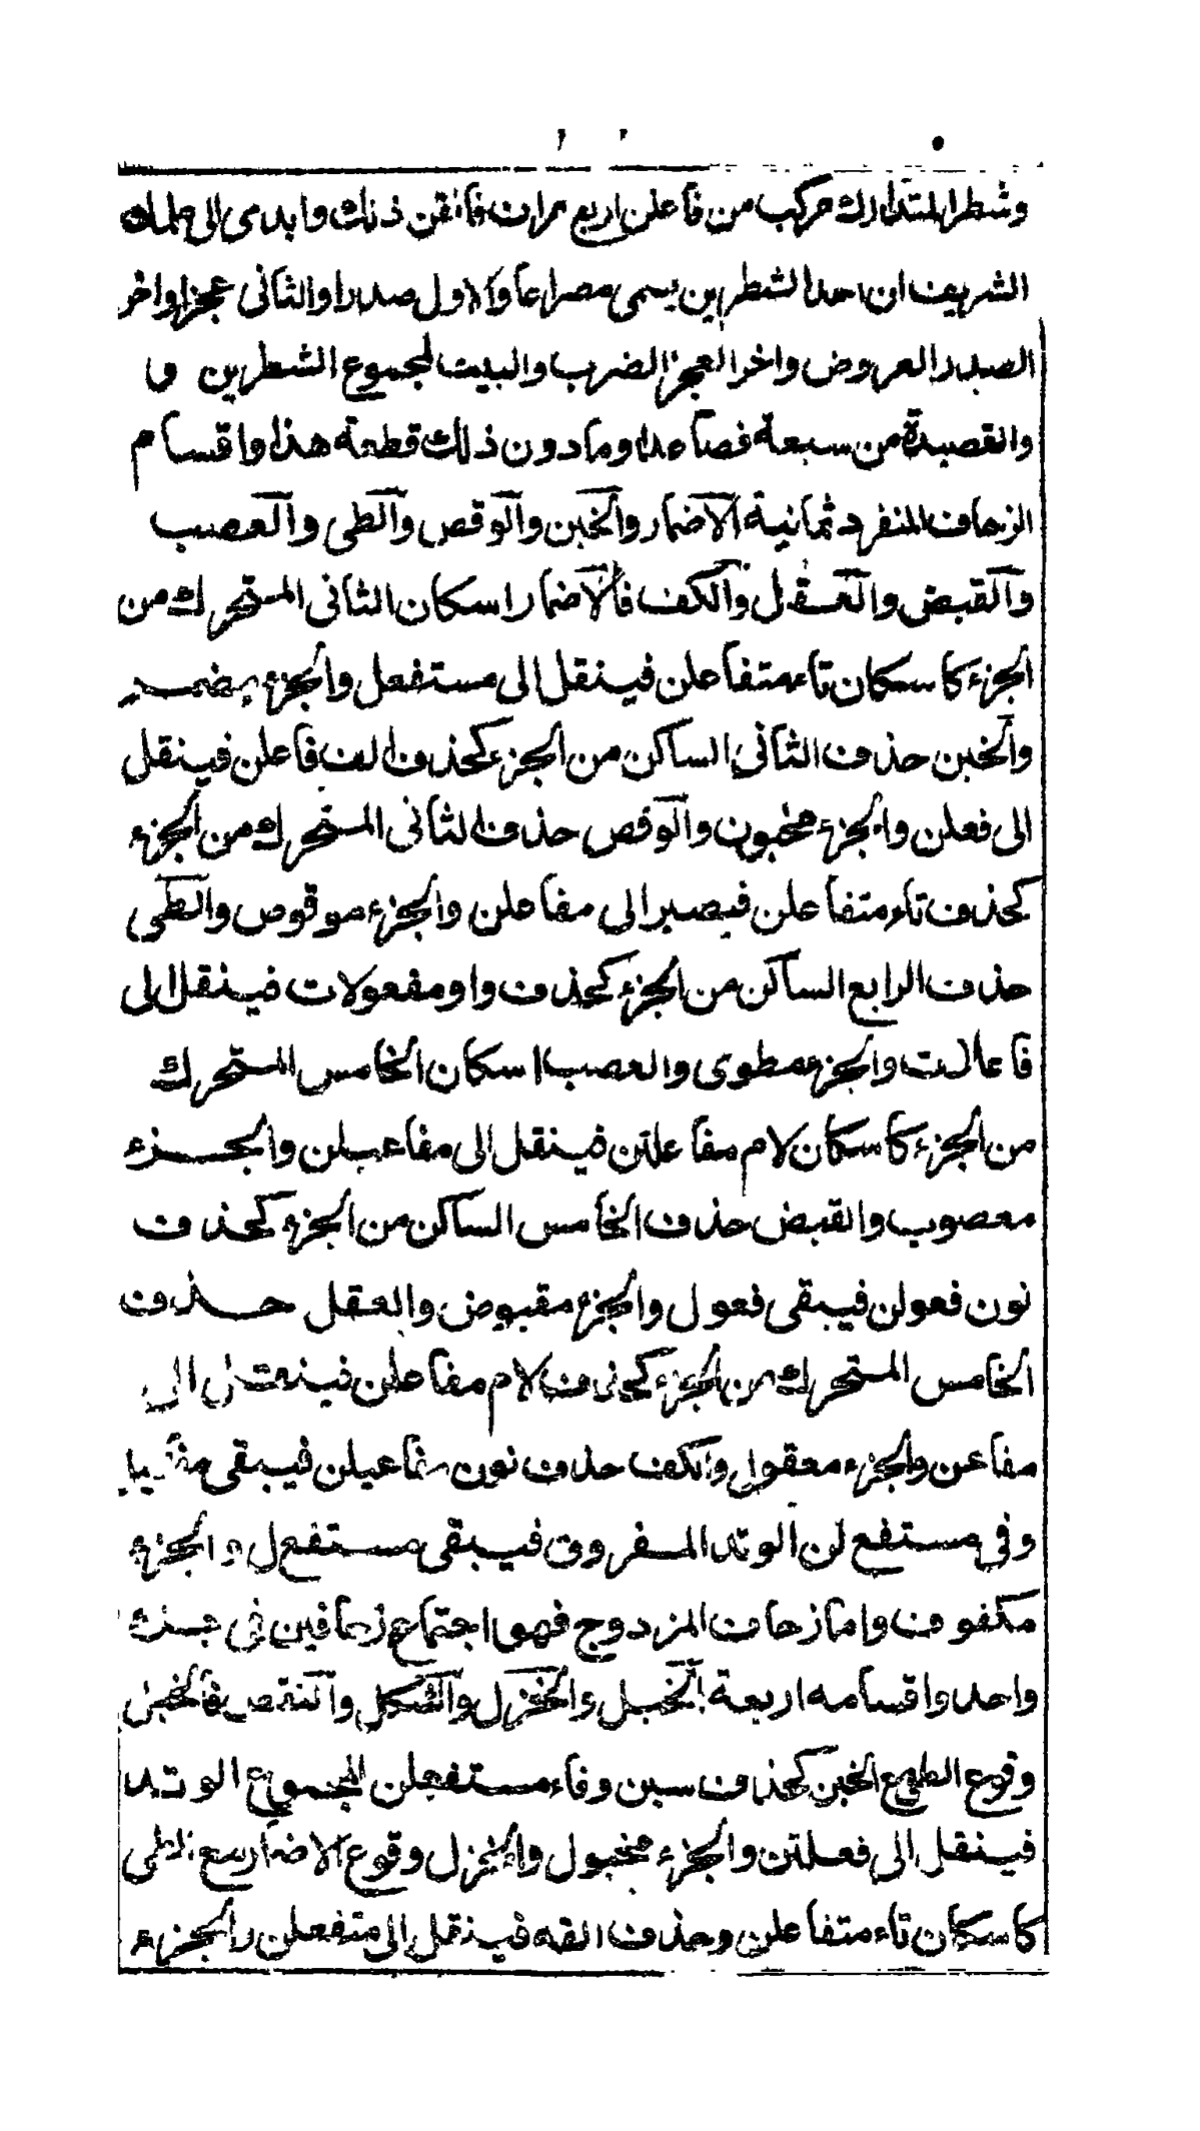 وشطر المتدارك مركب من فاعلن اربع مرات فاتقن ذلك وابدى الى علمك
الشريف ان احد الشطرين يسمى مصراعا والاول صدرا والثانى عجزا واخر
الصدر العروض واخر العجز الضرب والبيت لمجموع الشطرين و
والقصيدة من سبعة فصاعدا وما دون ذلك قطعة هذا واقسام
الزحاف المنفرد ثمانية الاضمار والخبن والوقص والطى والعصب
والقبض والعقل والكف فالاضمار اسكان الثانى المتحرك من
الجزء كاسكان تاء متفاعلن فينقل الى مستفعل والجزء مضمر
والخبن حذف الثانى الساكن من الجزء كحذف الف فاعلن فينقل
الى فعلن والجزء مخبون والوقص حذف الثانى المتحرك من الجزء
كحذف تاء متفاعلن فيصير الى مفاعلن والجزء موقوص والطى
حذف الرابع الساكن من الجزء كحذف واو مفعولات فينقل الى
فاعلات والجزء مطوى والعصب اسكان الخامس المتحرك
من الجزء كاسكان لام مفاعلتن فينقل الى مفاعيلن والجزء
معصوب والقبض حذف الخامس الساكن من الجزء كحذف
نون فعولن فيبقى فعول والجزء مقبوض والعقل حذف
الخامس المتحرك من الجزء كحذف لام مفاعلن فينقل الى
مفاعن والجزء معقول والكف حذف نون مفاعيلن فيبقى
وفى مستفع لن الوتد المفروق فيبقى مستفعل والجزء
مكفوف واما زحاف المزدوج فهو اجتماع زحافين فى جزء
واحد واقسامه اربعة الخبل والخزل والشكل والنقص فالخبن
وقوع الطى مع الخبن كحذف سين وفاء مستفعلن المجموع الوتد
فينقل الى فعلتن والجزء مخبول والخزل وقوع الاضمار مع الطى
كاسكان تاء متفاعلن وحذف الفه فينقل الى متفعلن والجزء